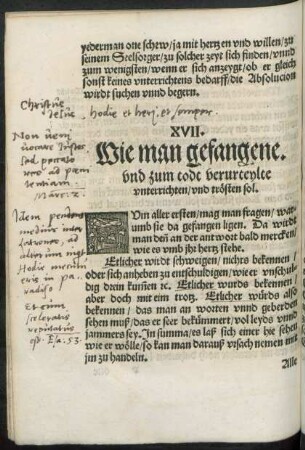 yederman one schew/ja mit hertzen vnd willen/zu
seinem Seelsorger/zu solcher zeyt sich finden/vnnd
zum wenigsten/wenn er sich anzeygt/ob er gleich
sonst keines vnterrichtens bedarff/die Absolucion
wirdt suchen vnnd begern.
Christus
hodie et heri, et semper
XVII.
Wie man gefangene.
vnd zum tode verurteylte
vnterrichten/vnd trösten sol.
Non veni
vocare justos
sed peccato
res ad pœni
tentiam.
Marc. 2
ZVm aller ersten/mag man fragen/war-
umb sie da gefangen ligen. Da wirdt
man deñ an der antwort bald mercken/
wie es vmb jhr hertz stehe.
Etlicher wirdt schweigen/nichts bekennen/
oder sich anheben zu entschuldigen/wie er vnschul
dig drein kum̃en ꝛc. Etlicher wurds bekennen/
aber doch mit eim trotz. Etlicher würds also
bekennen/das man an worten vnnd geberden
sehen muß/das er seer bekümmert/vol leyds vnnd
jammers sey. In summa/es laß sich einer hie sehen
wie er wölle/so kan man darauß vrsach nemen mit
jm zu handeln.
Idem
Hodie mecum
eris in pa
radiso
Et cum
sceleratis
reputatus
est. Esa. 53.
Alle